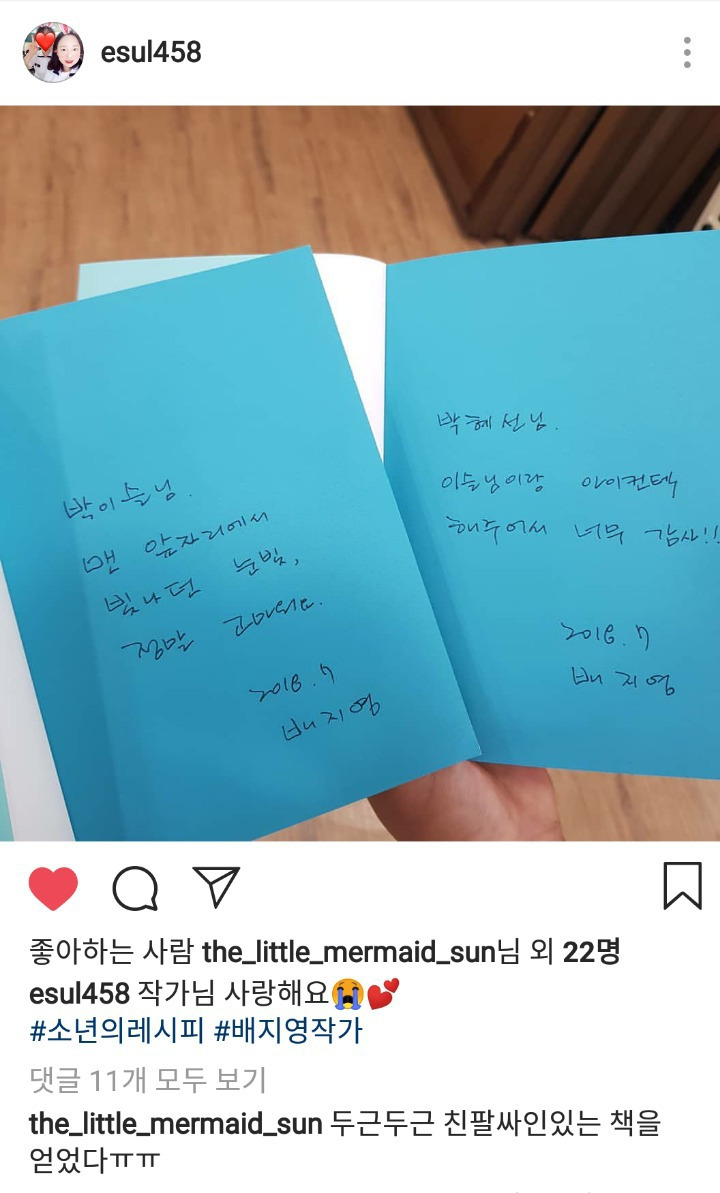 esul458
박이슬님.
맨 앞자리에서
빛나던 눈빛,
정말 고마워요.
2018.7
배지영
박혜선님.
이슬님이랑 아이컨텍
해주어서 너무 감사!!
2018.7
배지영
좋아하는 사람 the_little_mermaid_sun님 외 22명
esul458 작가님 사랑해요😭💕
#소년의레시피 #배지영작가
댓글 11개 모두 보기
the_little_mermaid_sun 두근두근 친팔싸인있는 책을
얻었다ㅠㅠ